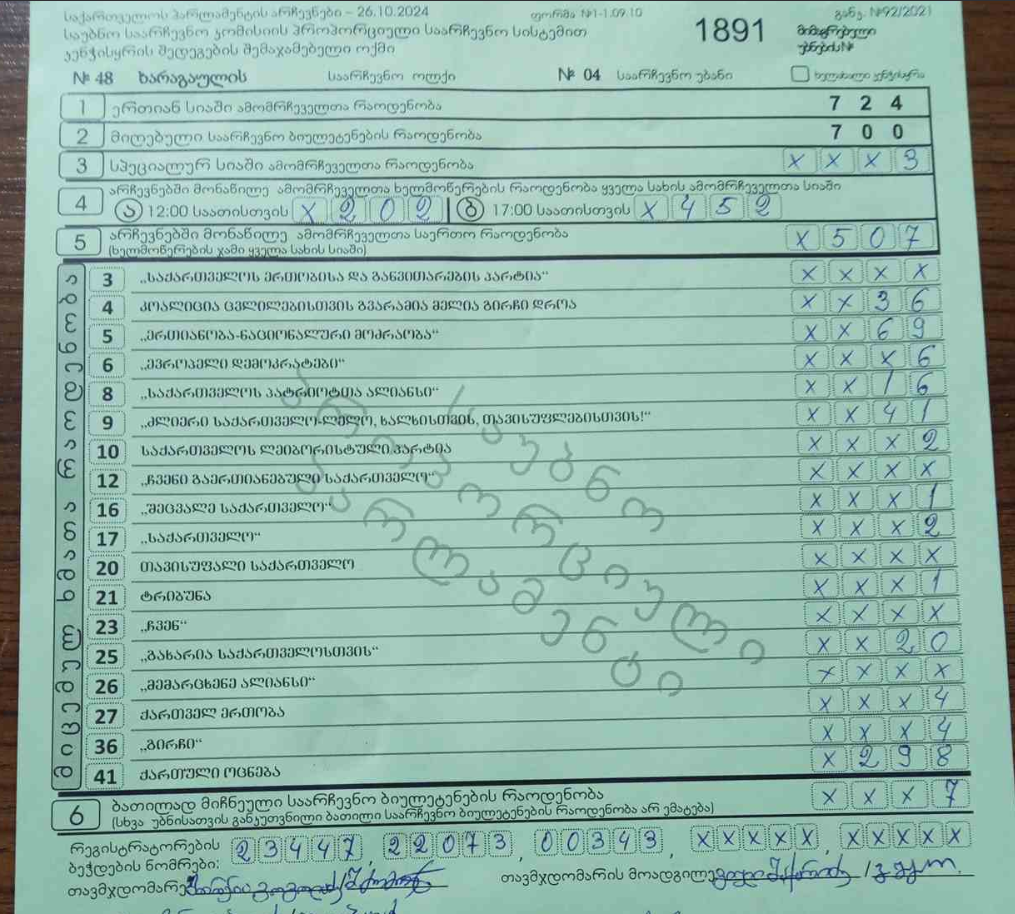 საქართველოს პარლამენტის არჩევნები – 26.10.2024 ფორმა №1-1.09.10 განკ. №92/2021
საუბნო საარჩევნო კომისიის პროპორციული საარჩევნო სისტემით 1891 მიმაგრებული
კენჭისყრის შედეგების შემაჯამებელი ოქმი უბნების №
№ 48 ხარაგაულის საარჩევნო ოლქი № 04 საარჩევნო უბანი ხელახალი კენჭისყრა
1 ერთიან სიაში ამომრჩეველთა რაოდენობა 7 2 4
2 მიღებული საარჩევნო ბიულეტენების რაოდენობა 7 0 0
3 სპეციალურ სიაში ამომრჩეველთა რაოდენობა X X X 3
არჩევნებში მონაწილე ამომრჩეველთა ხელმოწერების რაოდენობა ყველა სახის ამომრჩეველთა სიაში
4 ა 12:00 საათისთვის X 2 0 2 ბ 17:00 საათისთვის X 4 5 2
5 არჩევნებში მონაწილე ამომრჩეველთა საერთო რაოდენობა X 5 0 7
(ხელმოწერების ჯამი ყველა სახის სიაში)
მიცემულ ხმათა რაოდენობა
3 „საქართველოს ერთობისა და განვითარების პარტია“ X X X X
4 კოალიცია ცვლილებისთვის გვარამია მელია გირჩი დროა X X 3 6
5 „ერთიანობა-ნაციონალური მოძრაობა“ X X 6 9
6 „ევროპელი დემოკრატები“ X X X 6
8 „საქართველოს პატრიოტთა ალიანსი“ X X 1 6
9 „ძლიერი საქართველო-ლელო, ხალხისთვის, თავისუფლებისთვის!“ X X 4 1
10 საქართველოს ლეიბორისტული პარტია X X X 2
12 „ჩვენი გაერთიანებული საქართველო“ X X X X
16 „შეცვალე საქართველო“ X X X 1
17 „საქართველო“ X X X 2
20 თავისუფალი საქართველო X X X X
21 ტრიბუნა X X X 1
23 „ჩვენ“ X X X X
25 „გახარია საქართველოსთვის“ X X 2 0
26 „მემარცხენე ალიანსი“ X X X X
27 ქართველ ერთობა X X X 4
36 „გირჩი“ X X X 4
41 ქართული ოცნება X 2 9 8
6 ბათილად მიჩნეული საარჩევნო ბიულეტენების რაოდენობა X X X 7
(სხვა უბნისათვის განკუთვნილი ბათილი საარჩევნო ბიულეტენების რაოდენობა არ ემატება)
რეგისტრატორების 23447, 22073, 00343, XXXXX, XXXXX
ბეჭდების ნომრები:
თავმჯდომარე თავმჯდომარის მოადგილე